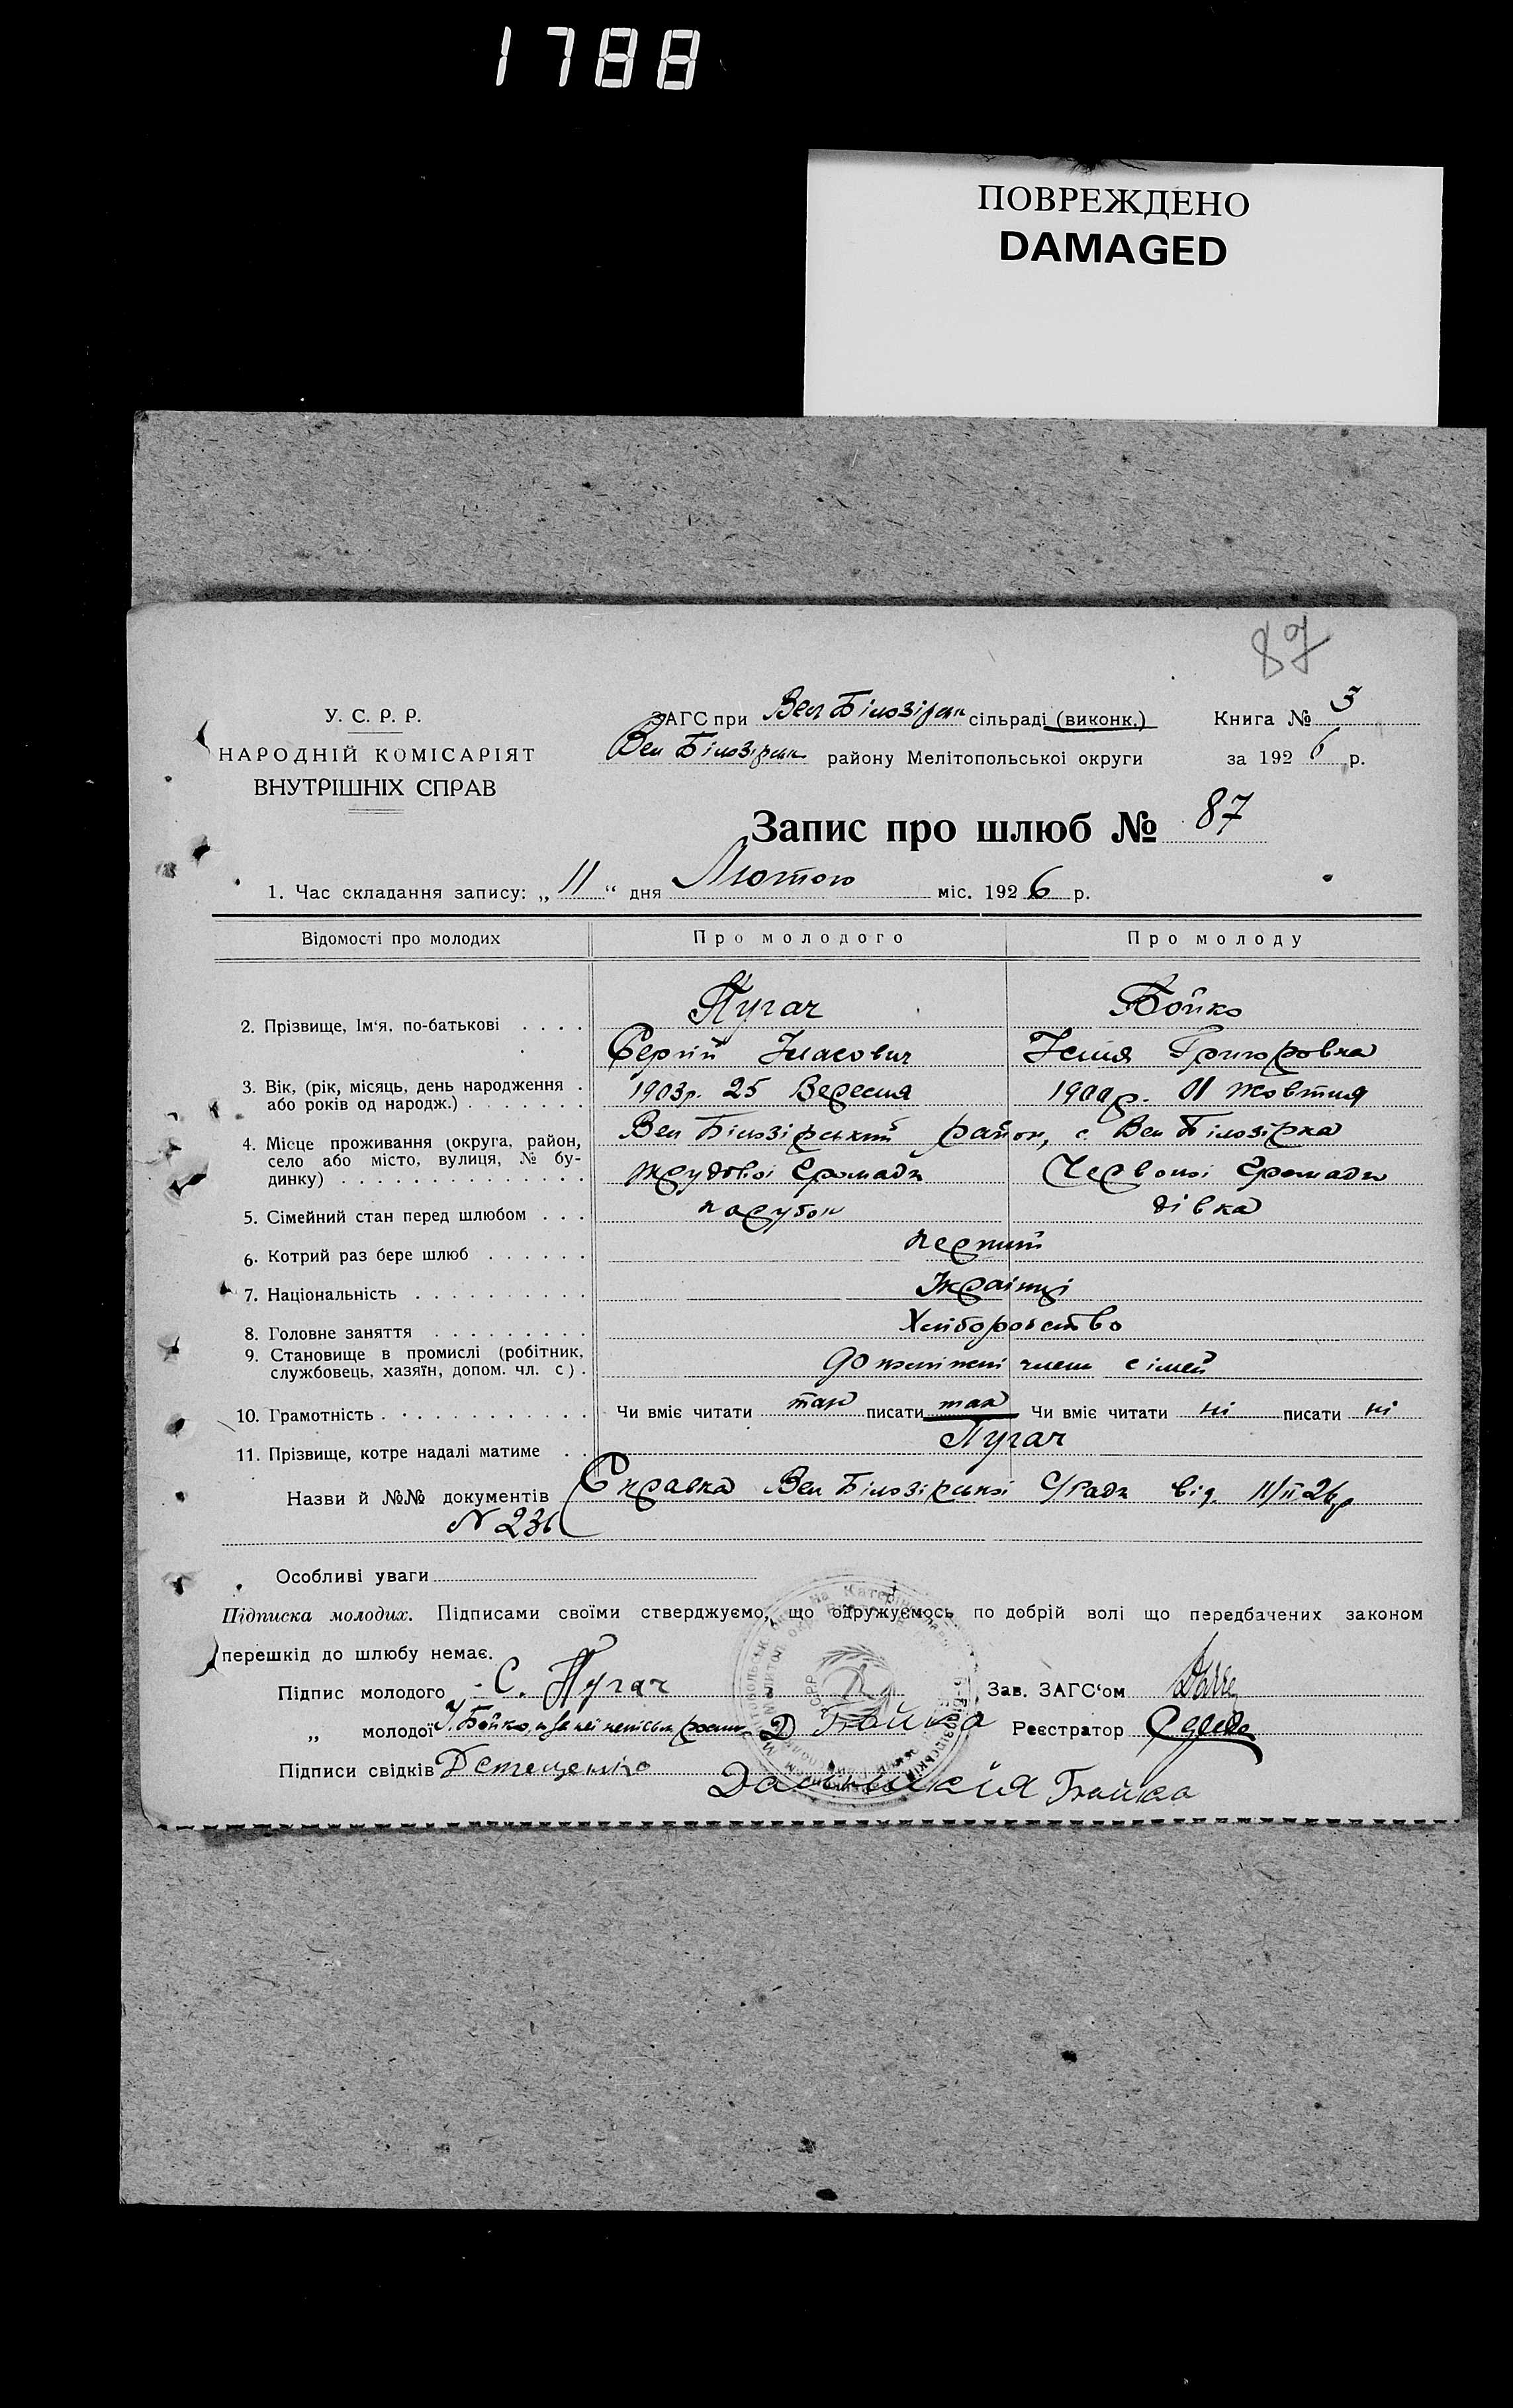 1788
ПОВРЕЖДЕНО
DAMAGED
87
У. С. Р. Р.
НАРОДНІЙ КОМІСАРІЯТ
ВНУТРІШНІХ СПРАВ
ЗАГС при Вел Білозірськ сільраді (виконк.) Книга № 3
Вел Білозірськ району Мелітопольської округи за 1926 р.
Запис про шлюб № 87
1. Час складання запису: „ 11 “ дня Лютого міс. 1926 р.
Відомості про молодих Про молодого Про молоду
2. Прізвище, Ім‘я, по-батькові . . . . Пугач Бойко
Сергій Власович Григоровна
3. Вік, (рік, місяць, день народження .
або років од народж.) . . . . . . . 1903 р. 25 Вересня Жовтня
4. Місце проживання (округа, район,
село або місто, вулиця, № бу-
динку) . . . . . . . . . . . . . .
Вел Білозірський район, с Вел Білозірка
трудової Громади Червоної Громади
5. Сімейний стан перед шлюбом . . . парубок дівка
6. Котрий раз бере шлюб . . . . . . перший
7. Національність . . . . . . . . . . Українці
8. Головне заняття . . . . . . . . . Хліборобство
9. Становище в промислі (робітник,
службовець, хазяїн, допом. чл. с) . члени сімей
10. Грамотність . . . . . . . . . . . . Чи вміє читати так писати так Чи вміє читати ні писати ні
11. Прізвище, котре надалі матиме . . Пугач
Назви й №№ документів Справка Вел Білозірської С/Ради від. 11/II 26 р
N 236
Особливі уваги
Підписка молодих. Підписами своїми стверджуємо, що одружуємось по добрій волі що передбачених законом
перешкід до шлюбу немає.
Підпис молодого С. Пугач Зав. ЗАГС‘ом
„ молодої Бойко, а за неї Д Бойко Реєстратор
Підписи свідків Бойко